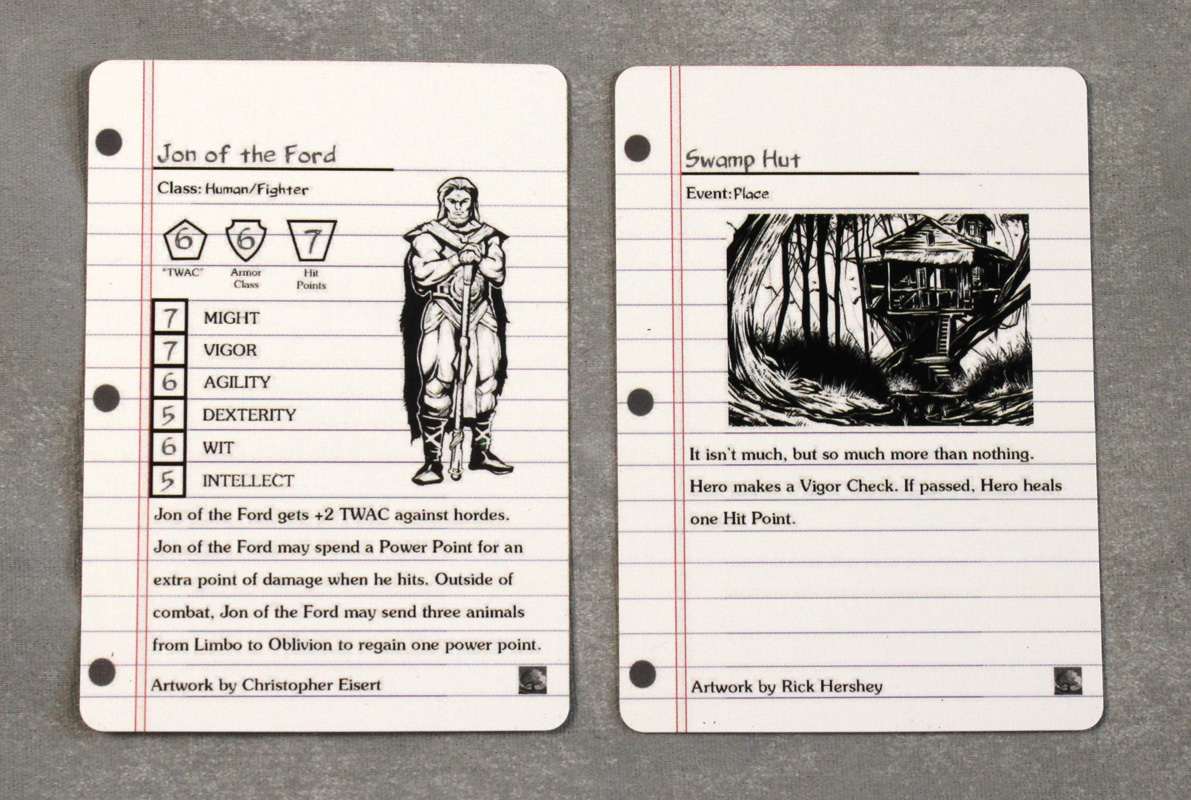 Jon of the Ford
Class: Human/Fighter
6 6 7
"TWAC" Armor Class Hit Points
7 MIGHT
7 VIGOR
6 AGILITY
5 DEXTERITY
6 WIT
5 INTELLECT
Jon of the Ford gets +2 TWAC against hordes.
Jon of the Ford may spend a Power Point for an
extra point of damage when he hits. Outside of
combat, Jon of the Ford may send three animals
from Limbo to Oblivion to regain one power point.
Artwork by Christopher Eisert
Swamp Hut
Event: Place
It isn't much, but so much more than nothing.
Hero makes a Vigor Check. If passed, Hero heals
one Hit Point.
Artwork by Rick Hershey